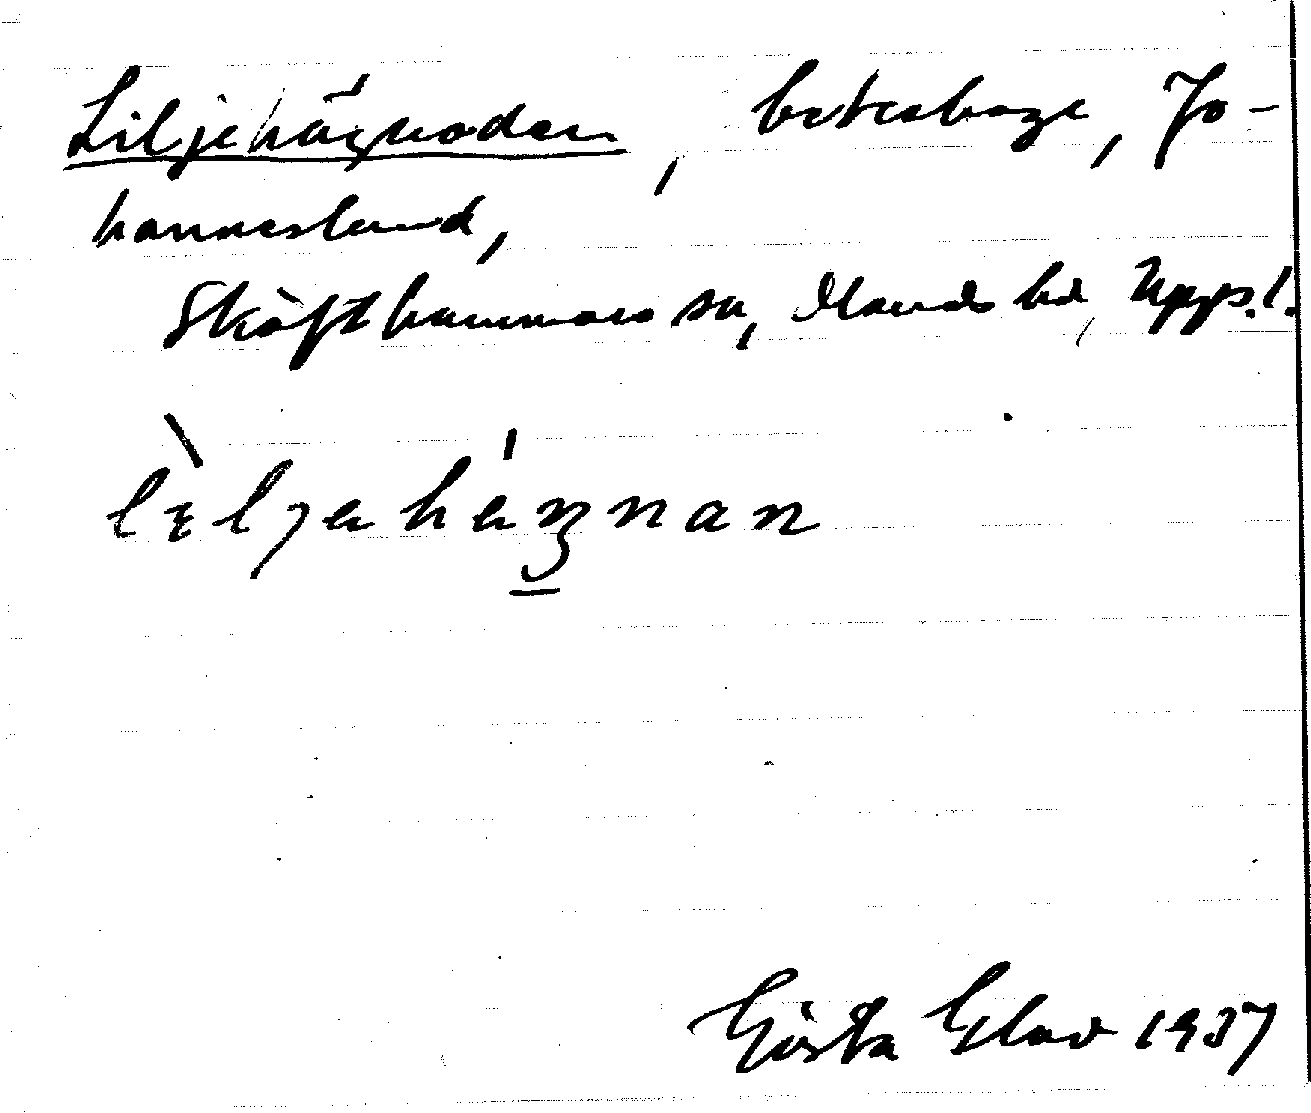 Liljehägnaden, beteshage, Jo-
hannesland,
Skäfthammars sn, Olands hd, Uppl.
Gösta Elav 1937